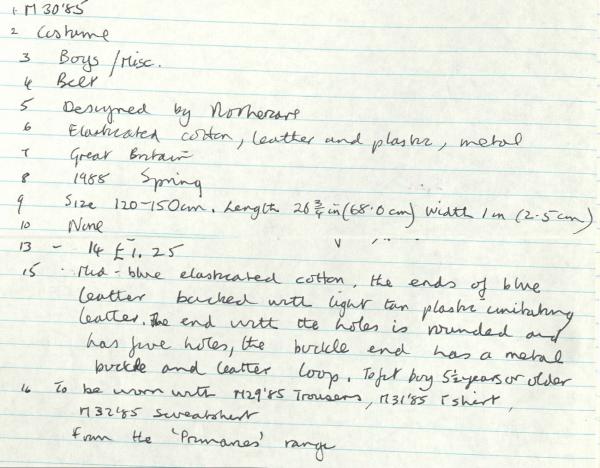 1 M30'85
2 Costume
3 Boys/Misc.
4 Belt
5 Designed by Mothercare
6 Elasticated cotton, leather and plastic, metal
7 Great Britain
8 1985 Spring
9 Size 120-150cm. Length 26¾in (68.0cm) Width 1in (2.5cm)
10 None
13 - 14 £1.25
15 Mid-blue elasticated cotton, the ends of blue
leather backed with light tan plastic imitating
leather. The end with the holes is rounded and
has five holes, the buckle end has a metal
buckle and leather loop. To fit boy 5½ years or older
16 To be worn with M29'85 Trousers, M31'85 T shirt,
M32'85 Sweatshirt
from the 'Primaries' range